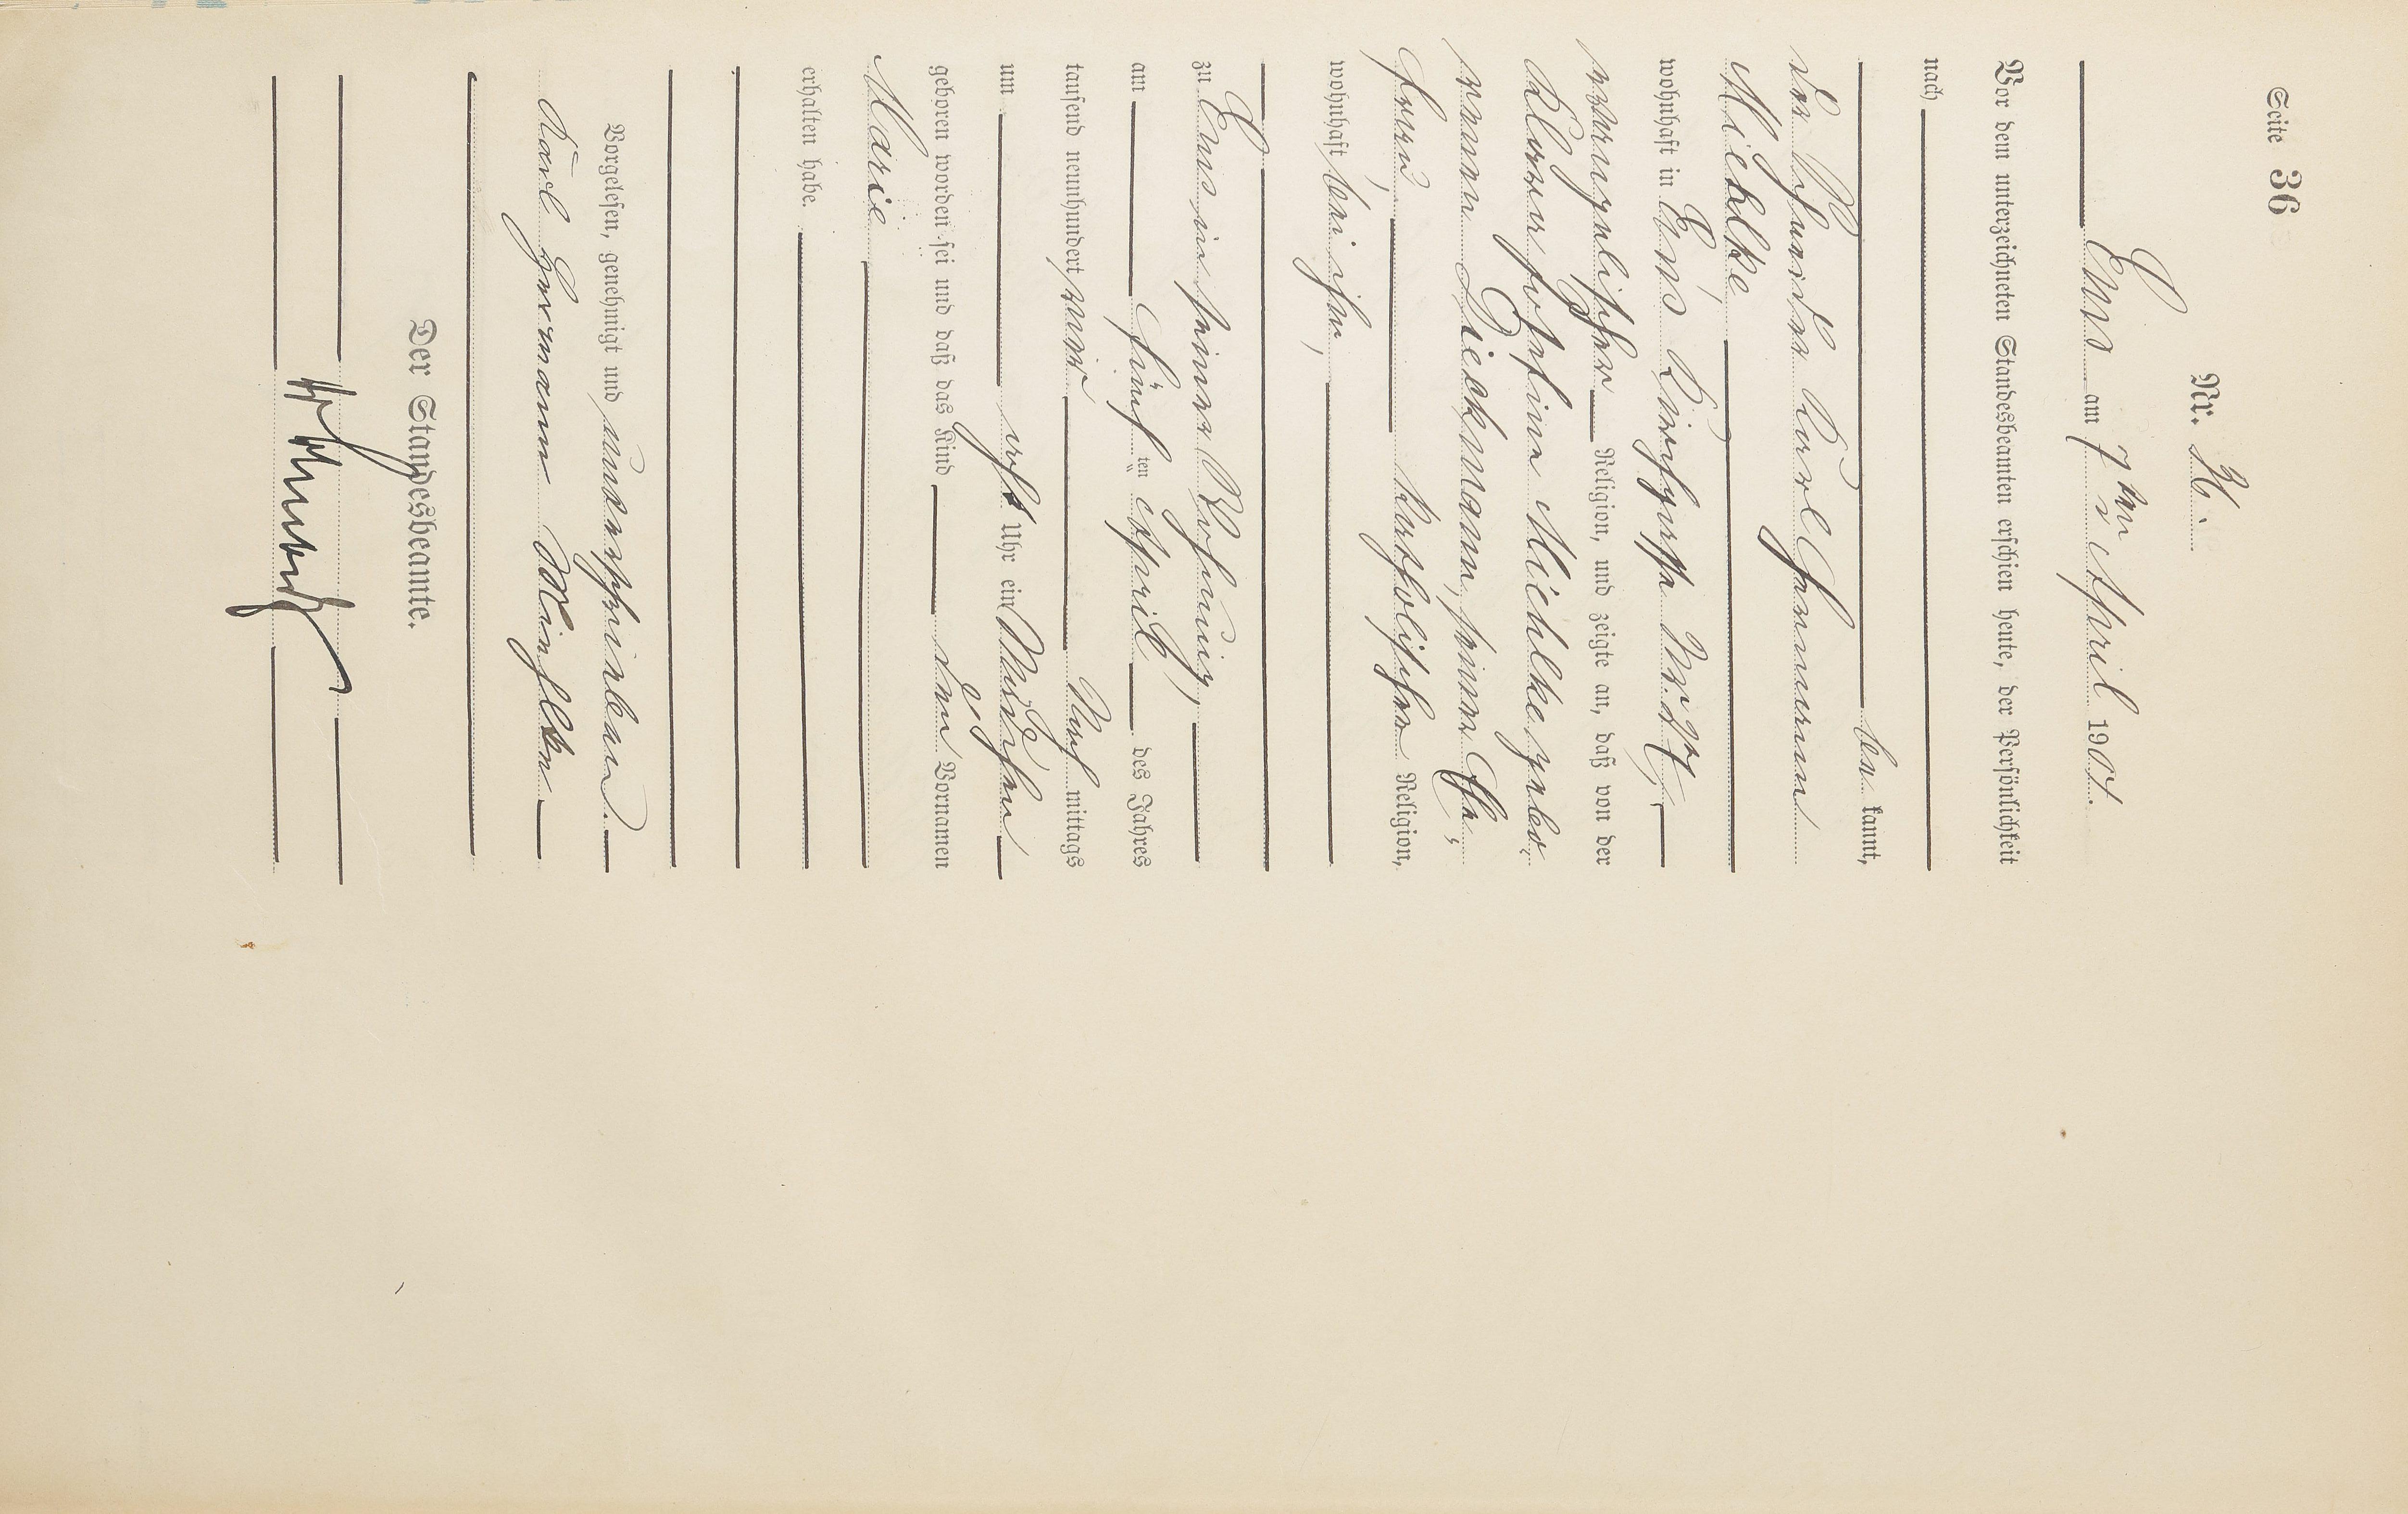 Seite 36
Nr. 36.
Ems am 7ten April 1904.
Vor dem unterzeichneten Standesbeamten erschien heute, der Persönlichkeit
nach
be kannt,
der Schneider Karl Hermann
Miehlke,
wohnhaft in Ems
evangelischer Religion, und zeigte an, daß von der
Klara Josefine Miehlke gebo-
renen Dieckmann, seiner Ehe-
frau, katholischer Religion,
wohnhaft bei ihm,
zu Ems in seiner Wohnung,
am fünf ten April des Jahres
tausend neunhundert vier Nach mittags
um acht Uhr ein Mädchen
geboren worden sei und daß das Kind den Vornamen
Marie
erhalten habe.
Vorgelesen, genehmigt und unterschrieben.
Karl Hermann
Der Standesbeamte.